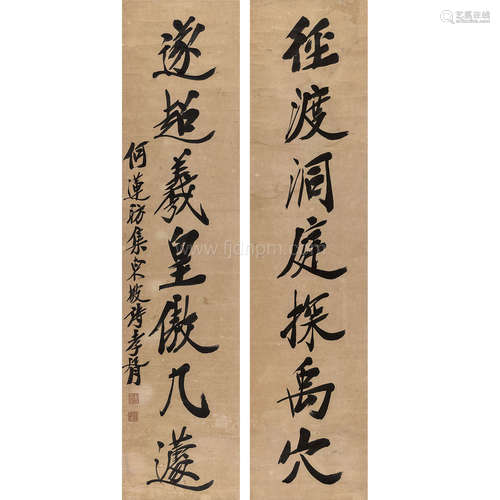 径渡洞庭探禹穴
遂超羲皇傲几蘧
何莲舫集東坡诗孝胥
www.fjdhpm.com